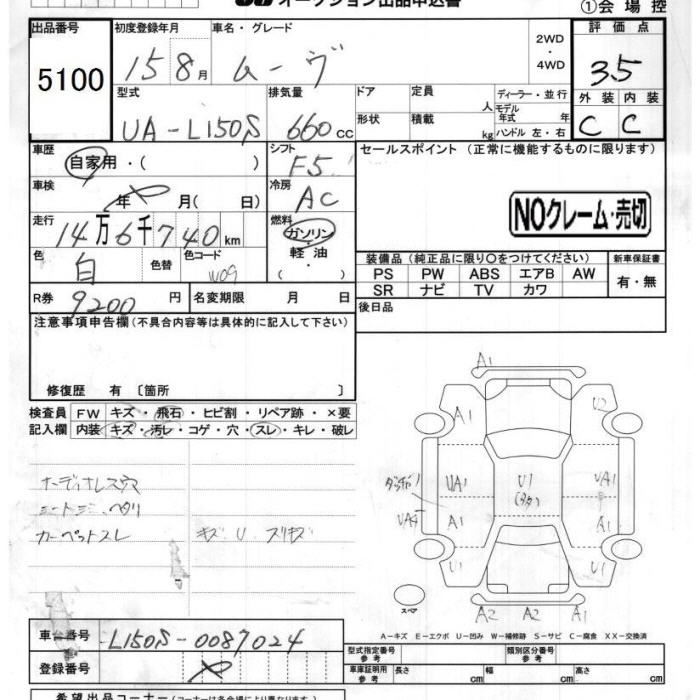 オークション出品申込書
①会場控
出品番号 初度登録年月 車名・グレード 2WD・4WD 評価点
5100 15 8月 ムーヴ 3.5
型式 排気量 ドア 定員 人 ディーラー・並行 外装 内装
UA-L150S 660cc 形状 積載 kg モデル年式 年 ハンドル 左・右 C C
車歴 シフト セールスポイント (正常に機能するものに限ります)
自家用・( ) F5
車検 年 月( 日) 冷房 AC
NOクレーム・売切
走行 14万6千740km 燃料 ガソリン・軽油・( )
色 白 色替 色コード W09
装備品 (純正品に限り○をつけてください) 新車保証書
PS PW ABS エアB AW 有・無
SR ナビ TV カワ
R券 9200円 名変期限 月 日 後日品
注意事項申告欄(不具合内容等は具体的に記入して下さい)
修復歴 有 〔箇所 〕
検査員記入欄 FW キズ・飛石・ヒビ割・リペア跡・×要
内装 キズ・汚レ・コゲ・穴・スレ・キレ・破レ
オーディオレス
カーペットスレ キズ U スリキズ
A1
A1 U2
UA1 U1 UA1
A1 A1
U1 U1
スペア
A2 A2 A1
A−キズ E−エクボ U−凹み W−補修跡 S−サビ C−腐食 XX−交換済
車台番号 L150S-0087024
登録番号
型式指定番号 参考 類別区分番号 参考
車庫証明用 参考 長さ cm 幅 cm 高さ cm
希望出品コーナー